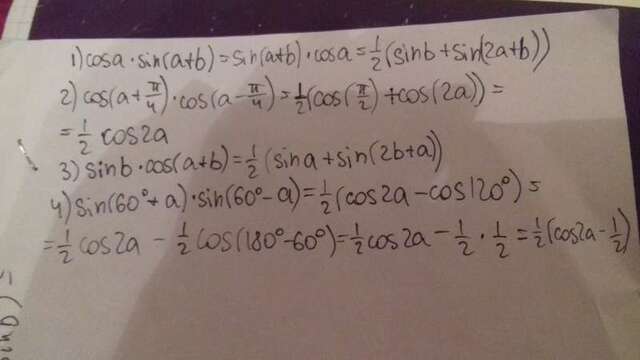 1) cosa·sin(a+b)=sin(a+b)·cosa=½(sinb+sin(2a+b))
2) cos(a+π/4)·cos(a-π/4)=½(cos(π/2)+cos(2a))=
=½ cos2a
3) sinb·cos(a+b)=½(sina+sin(2b+a))
4) sin(60°+a)·sin(60°-a)=½(cos2a-cos120°)=
=½cos2a-½cos(180°-60°)=½cos2a-½·½=½(cos2a-½)